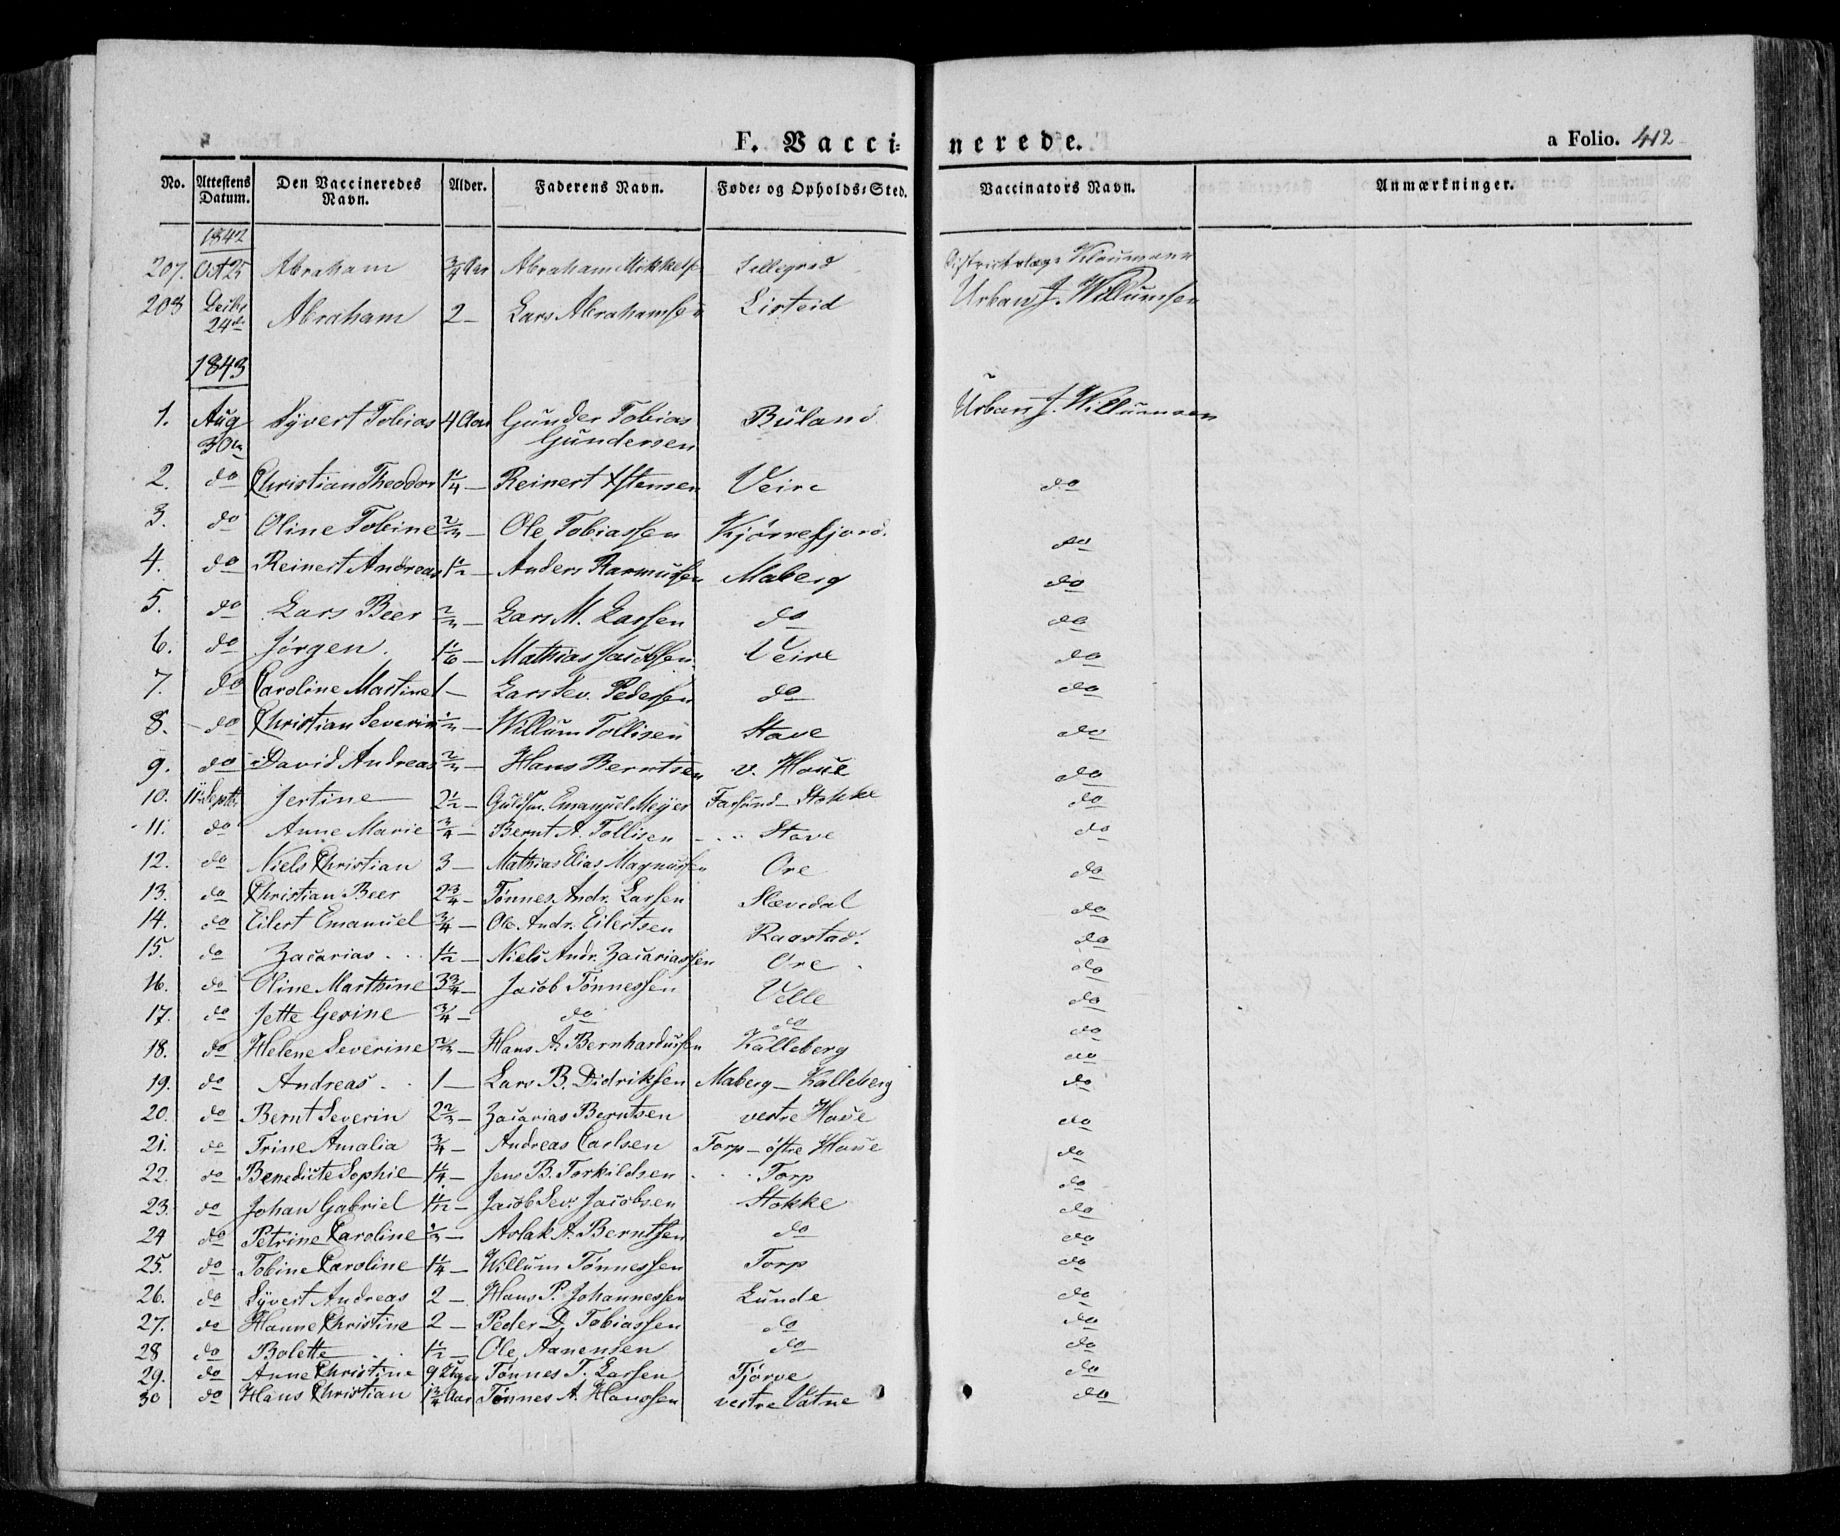 F. Vaccinerede. a Folio. 412
No. Attestens Datum. Den Vaccineredes Navn. Alder. Faderens Navn. Føde= og Opholds=Sted. Vaccinators Navn. Anmærkninger.
1842
207. Oct 25 Abraham 3/4 Aar Abraham Mikkels Klaumann
208 24de Abraham 2 – Lars Abrahamsen Listeid Urban J. Willumsen
1843
1. Aug 30te Syvert Tobias 4 Aar Gunder Tobias Gundersen Buland Urban J. Willumsen
2. do Christian Theodor 1 1/4 – Reinert Veire do
3. do Oline Tobine – Ole Tobiassen Kjørrefjord. do
4. do Reinert Andreas 1 1/2 – Anders Rasmussen Maberg do
5. do Lars Beer – Lars M. Larsen do do
6. do Jørgen. 1 1/6 – Mathias Jacobsen. Veire do
7. do Caroline Martine 1 – Lars Sev. Pedersen do do
8. – do Christian Severin – Willum Tollisen Stave do
9. do David Andreas – Hans Berntsen v. Haue do
10. 11te Septbr Jertine 2 1/2 – Guldsm. Emanuel Meyer Farsund – Stokke do
11. do Anne Marie 3/4 – Bernt A. Tollisen – . . Stave do
12. do Niels Christian 3 – Mathias Elias Magnussen Ore do
13. do Christian Beer 2 3/4 – Tønnes Andr. Larsen Slævdal do
14. do Eilert Emanuel 3/4 – Ole Andr. Eilertsen Raastad. do
15. do Zacarias . . 1 1/2 – Niels Andr. Zacariassen Ore . do
16. do Oline Marthine 3 3/4 – Jacob Tønnessen Velle do
17. do Jette Gerine 3/4 – do do do
18. do Helene Severine 2/3 – Hans A. Bernhardussen Kalleberg do
19. do Andreas . . 1 – Lars B. Didriksen Maberg – Kalleberg do
20. do Bernt Severin 2 2/3 – Zacarias Berntsen vestre Haue do
21. do Trine Amalia 3/4 – Andreas Carlsen Torp – østre Haue do
22. do Benedicte Sophie 1 1/4 – Jens B. Torkildsen . . Torp do
23. do Johan Gabriel 1 1/2 – Jacob Sev. Jacobsen Stokke do
24 do Petrine Caroline – Aslak A. Berntsen do do
25. do Tobine Caroline 1 1/4 – Willum Tønnessen Torp do
26. do Syvert Andreas 2 – Hans P. Johannessen Lunde do
27. do Hanne Christine 2 – Peder D. Tobiassen do do
28 do Bolette . . 1 1/2 – Ole Aanensen do do
29. do Anne Christine 9 Uger Tønnes T. Larsen Tjørve do
30 do Hans Christian 1 3/4 Aar Tønnes A. Hanssen vestre Vatne do